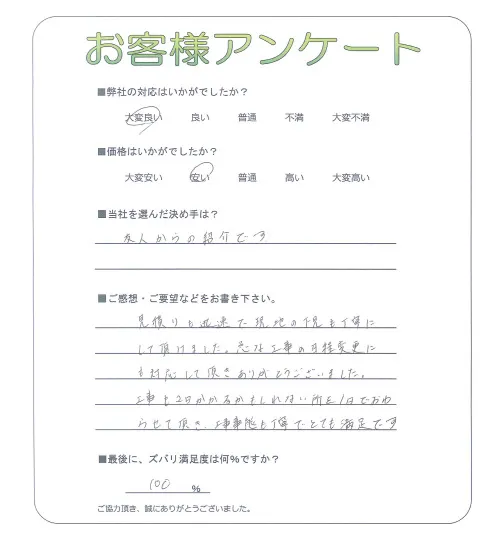 お客様アンケート
■弊社の対応はいかがでしたか？
大変良い 良い 普通 不満 大変不満
■価格はいかがでしたか？
大変安い 安い 普通 高い 大変高い
■当社を選んだ決め手は？
友人からの紹介です
■ご感想・ご要望などをお書き下さい。
見積りも迅速で現地の下見も丁寧に
して頂けました。急な工事の日程変更に
も対応して頂きありがとうございました。
工事も2日かかるかもしれない所を1日で終わ
らせて頂き、工事も丁寧でとても満足です
■最後に、ズバリ満足度は何%ですか？
100 %
ご協力頂き、誠にありがとうございました。